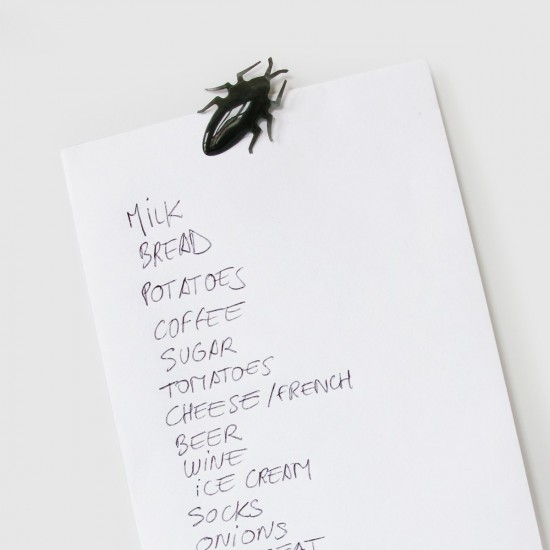 MILK
BREAD
POTATOES
COFFEE
SUGAR
TOMATOES
CHEESE/FRENCH
BEER
WINE
ICE CREAM
SOCKS
ONIONS